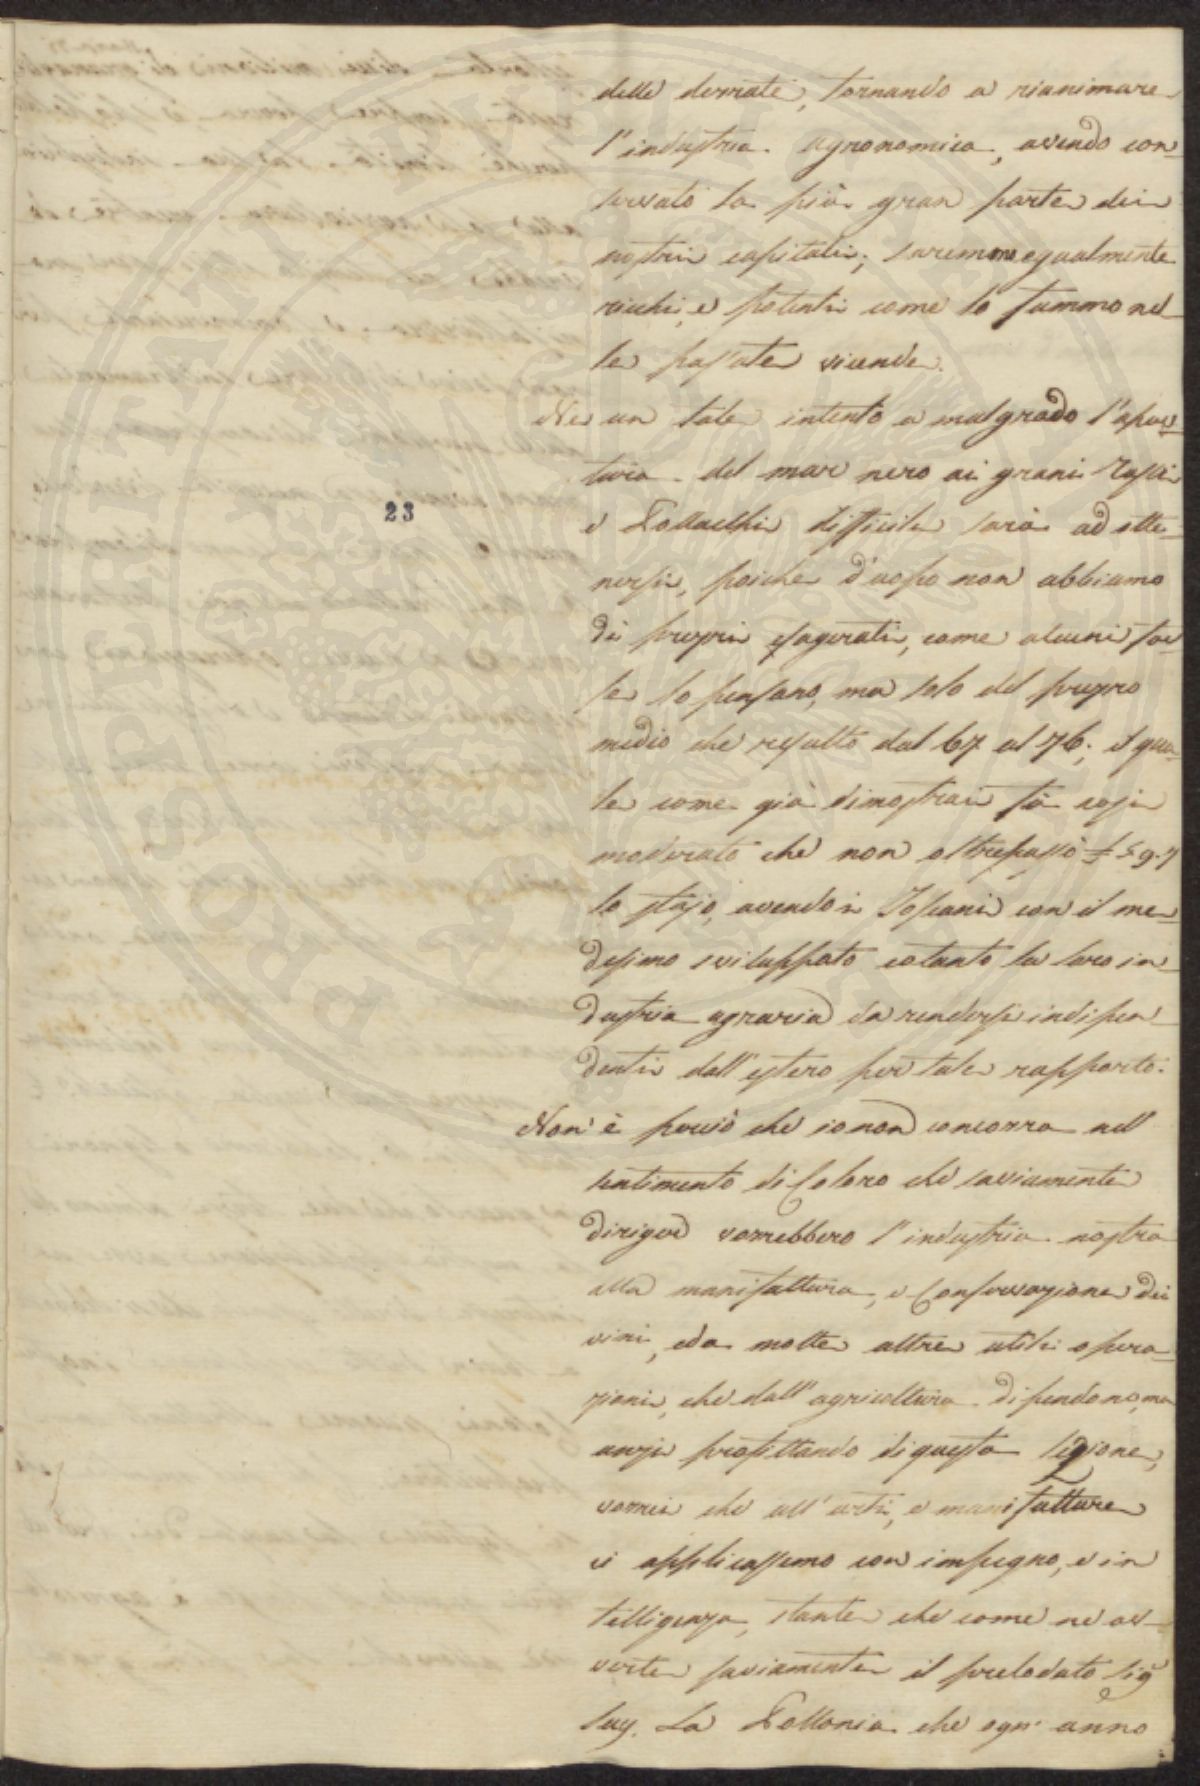 delle derrate, tornando a rianimare
l'industria agronomica, avendo con-
servato la più gran parte dei
nostri capitali; saremmo egualmente
ricchi, e potenti come lo fummo nel-
le passate vicende.
Ne un tale intento a malgrado l'aper-
tura del mar nero ai grani Russi
e Pollacchi difficile sarà ad otte-
nersi, poiche d'uopo non abbiamo
di prezzi esagerati, come alcuni for-
se lo pensano, ma solo del prezzo
medio che resultò dal 67 al 76; il qua-
le come già dimostrai fù così
moderato che non oltrepassò £ 5. 9. 7
lo stajo, avendo i Toscani con il me-
desimo sviluppato cotanto la loro in-
dustria agraria da rendersi indipen-
denti dall'estero per tale rapporto.
Non è perciò che io non concorra nel
sentimento di Coloro che saviamente
diriger vorrebbero l'industria nostra
alla manifattura, e Conservazione dei
vini, ed a molte altre utili opera-
zioni, che dall'agricoltura dipendono, ma
anzi profittando di questa lezione,
vorrei che all'arti, e manifatture
ci applicassimo con impegno, e in
telligenza, stante che come ne av-
verte saviamente il prelodato Sig.
La Pollonia che ogn' anno
23
PROSPERITATI PUBLICAE